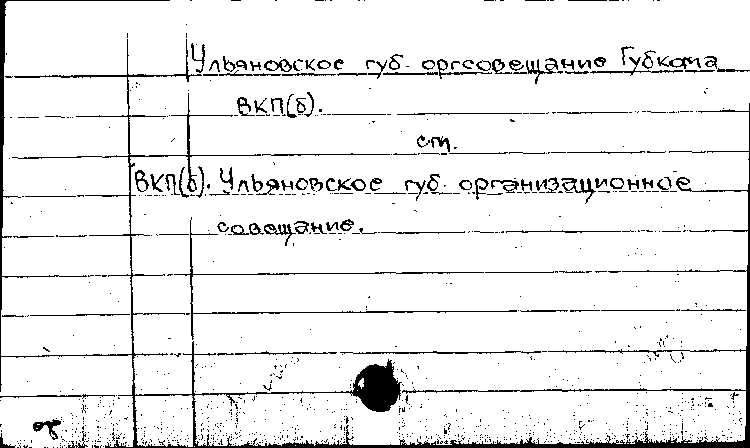 Ульяновское губ. оргсовещание Губкома
ВКП(б).
см.
ВКП(б). Ульяновское губ. организационное
совещание.